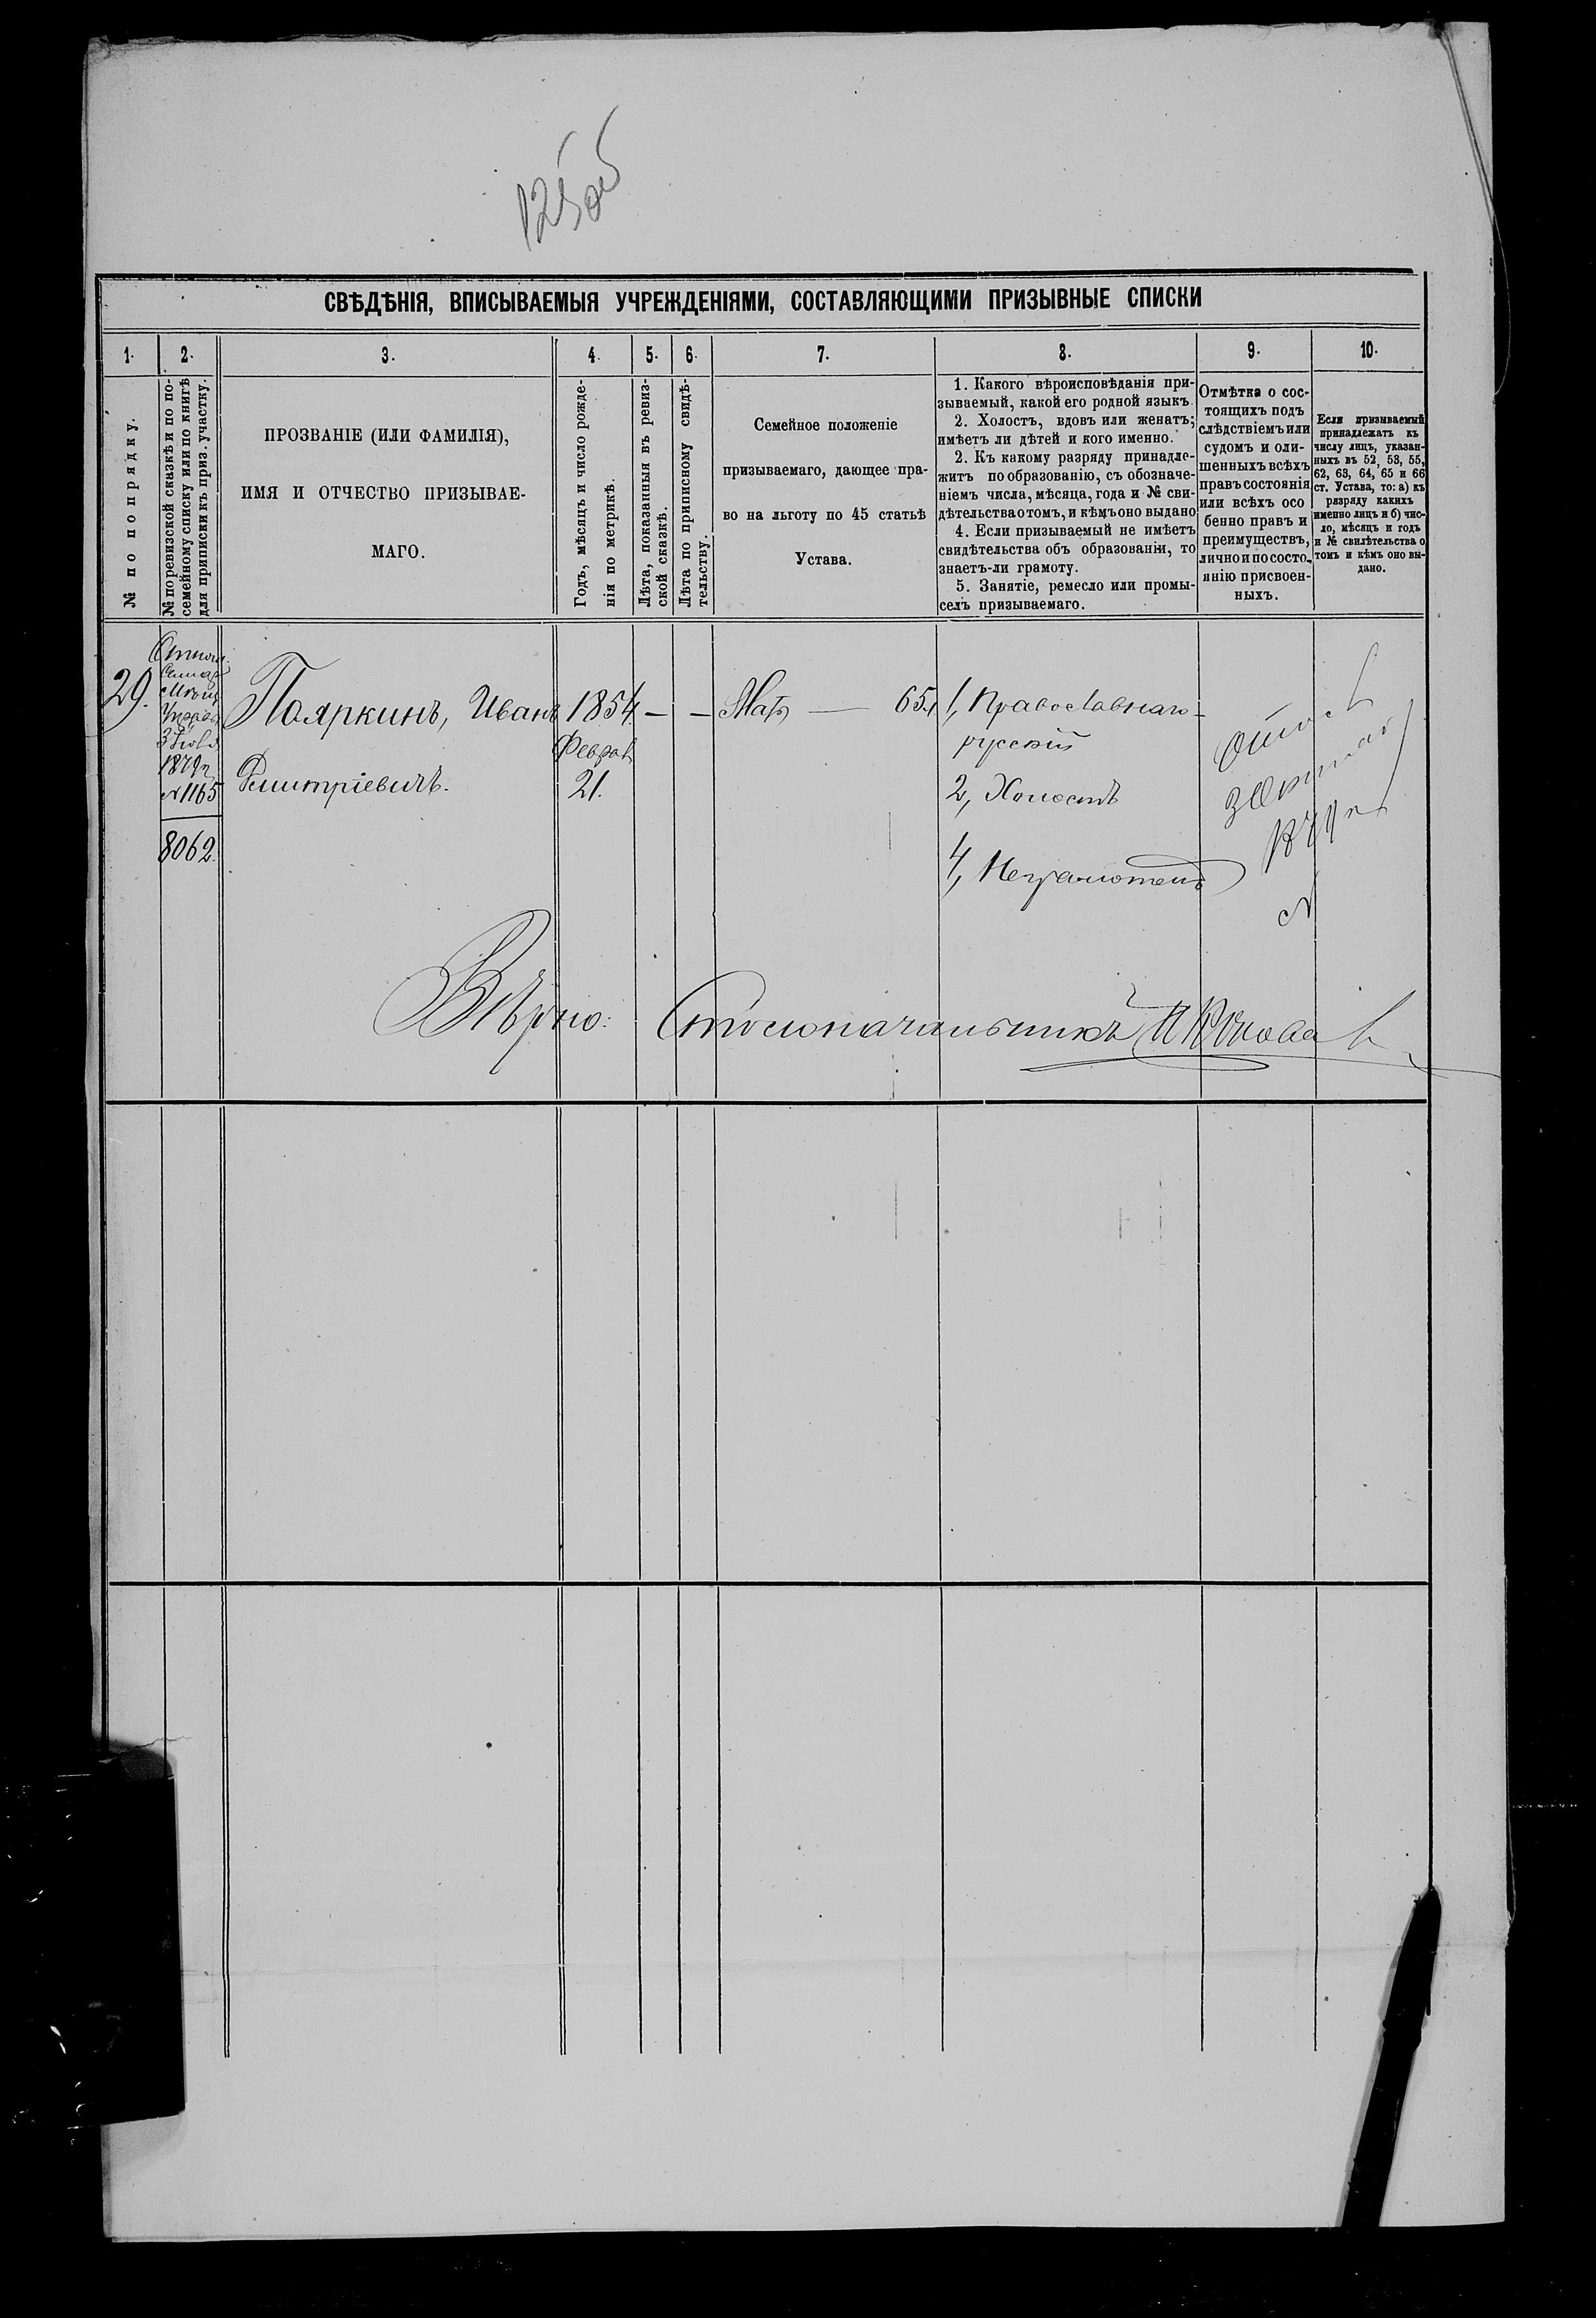 125об
СВѢДѢНІЯ, ВПИСЫВАЕМЫЯ УЧРЕЖДЕНІЯМИ, СОСТАВЛЯЮЩИМИ ПРИЗЫВНЫЕ СПИСКИ
1.
2.
3.
4.
5.
6.
7.
8.
9.
10.
№ по порядку.
№ по ревизской сказкѣ и по по-
семейному списку или по книгѣ
для приписки къ приз. участку.
ПРОЗВАНІЕ (ИЛИ ФАМИЛІЯ),
ИМЯ И ОТЧЕСТВО ПРИЗЫВАЕ-
МАГО.
Годъ, мѣсяцъ и число рожде-
нія по метрикѣ.
Лѣта, показанныя въ ревиз-
ской сказкѣ.
Лѣта по приписному свидѣ-
тельству.
Семейное положеніе
призываемаго, дающее пра-
во на льготу по 45 статьѣ
Устава.
1. Какого вѣроисповѣданія при-
зываемый, какой его родной языкъ.
2. Холостъ, вдовъ или женатъ;
имѣетъ ли дѣтей и кого именно.
2. Къ какому разряду принадле-
житъ по образованію, съ обозначе-
ніемъ числа, мѣсяца, года и № сви-
дѣтельства о томъ, и кѣмъ оно выдано
4. Если призываемый не имѣетъ
свидѣтельства объ образованіи, то
знаетъ-ли грамоту.
5. Занятіе, ремесло или промы-
селъ призываемаго.
Отмѣтка о сос-
тоящихъ подъ
слѣдствіемъ или
судомъ и о ли-
шенныхъ всѣхъ
правъ состоянія
или всѣхъ осо
бенно правъ и
преимуществъ,
лично и по состо-
янію присвоен-
ныхъ.
Если призываемый
принадлежатъ къ
числу лицъ, указан-
ныхъ въ 52, 53, 55,
62, 63, 64, 65 и 66
ст. Устава, то: а) къ
разряду какихъ
именно лицъ и б) чис-
ло, мѣсяцъ и годъ
и № свилѣтельства о
томъ и кѣмъ оно вы-
дано.
29.
1879г
№ 1165
8062.
Пояркинъ, Иванъ
Дмитріевичъ.
1854
Феврал
21.
—
—
Мать — 65.
1, Православнаго
русскій
2, Холостъ
4, Неграмотенъ
Вѣрно: Столоначальникъ